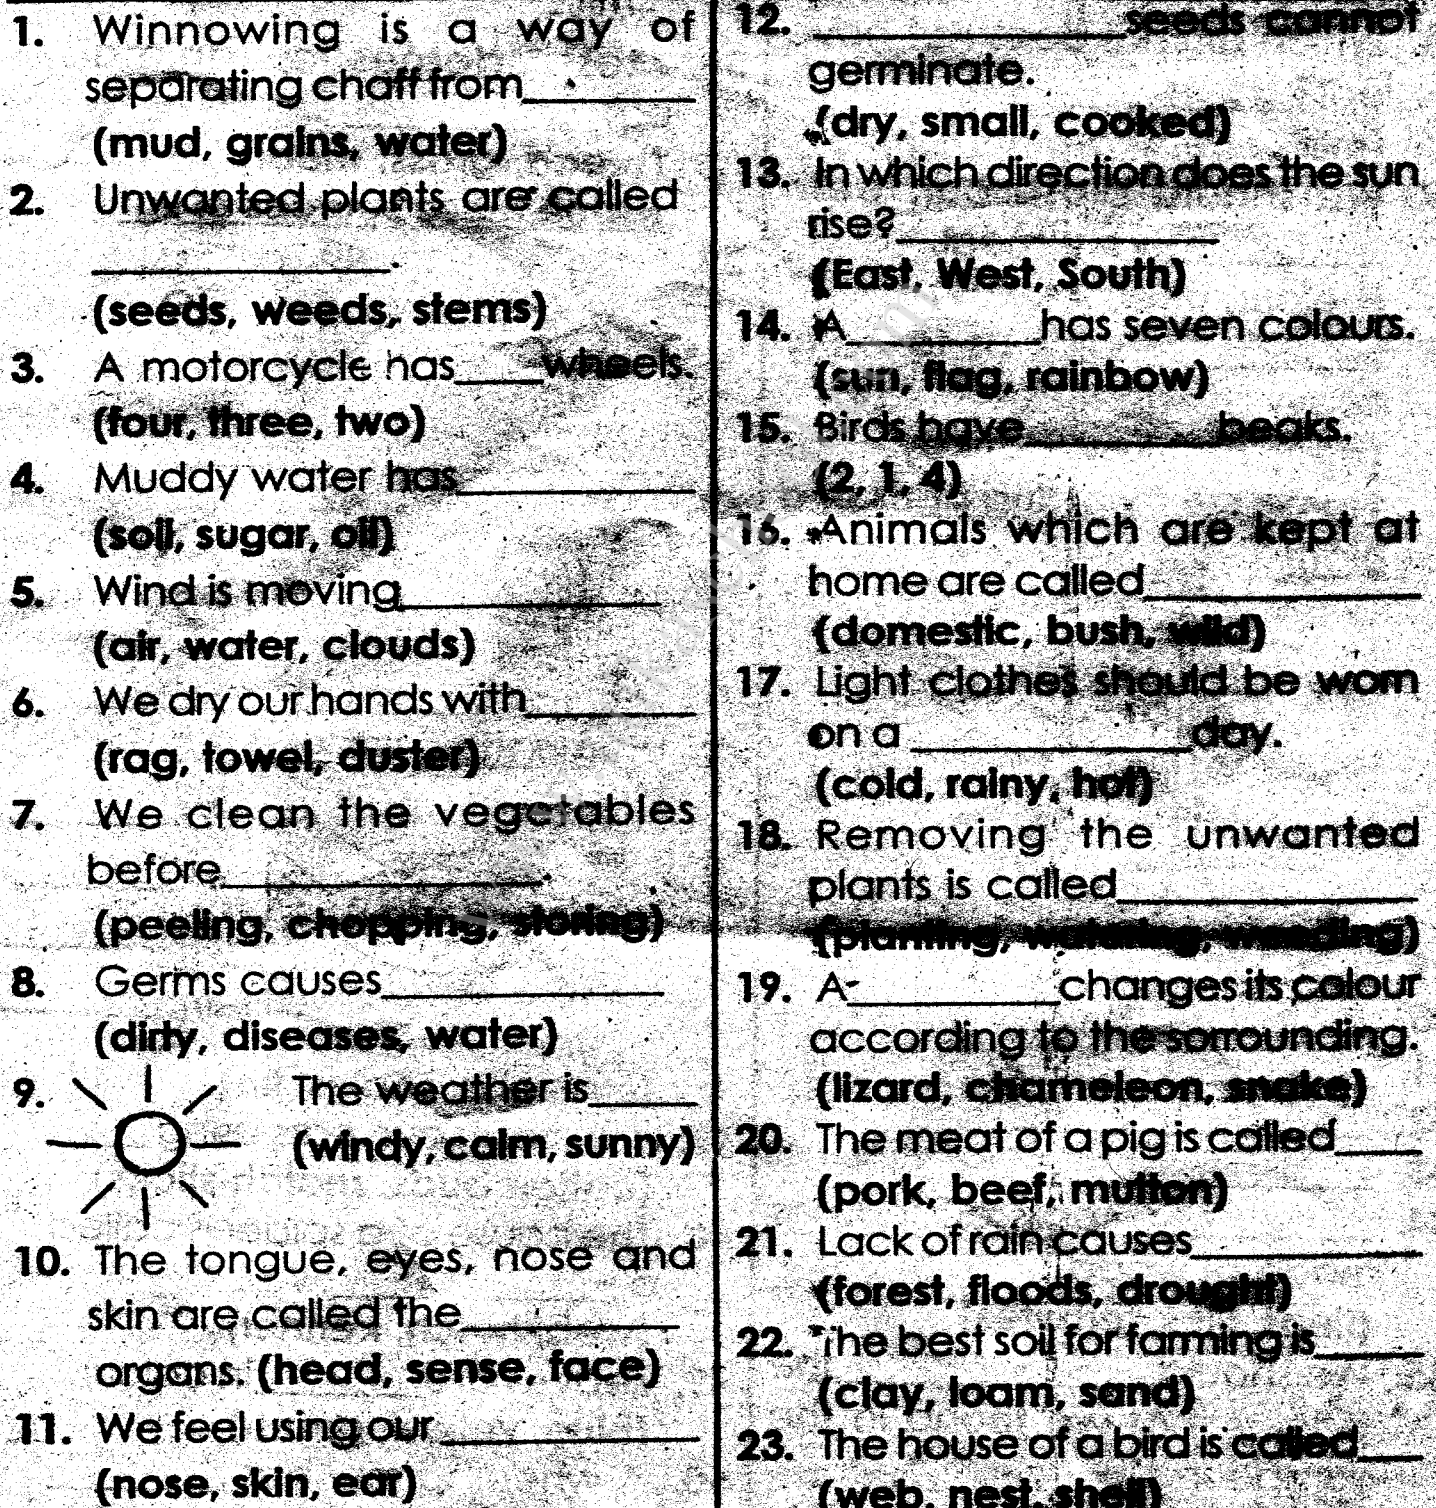 1. Winnowing is a way of
separating chaff from_______
(mud, grains, water)
2. Unwanted plants are called
____________.
(seeds, weeds, stems)
3. A motorcycle has____wheels.
(four, three, two)
4. Muddy water has__________
(soil, sugar, oil)
5. Wind is moving___________
(air, water, clouds)
6. We dry our hands with_______
(rag, towel, duster)
7. We clean the vegetables
before_____________.
(peeling, chopping, storing)
8. Germs causes____________
(dirty, diseases, water)
9. The weather is_____
(windy, calm, sunny)
10. The tongue, eyes, nose and
skin are called the_________
organs. (head, sense, face)
11. We feel using our ___________
(nose, skin, ear)
12. _____________seeds cannot
germinate.
(dry, small, cooked)
13. In which direction does the sun
rise?_____________
(East, West, South)
14. A________has seven colours.
(sun, flag, rainbow)
15. Birds have________beaks.
(2, 1, 4)
16. Animals which are kept at
home are called___________
(domestic, bush, wild)
17. Light clothes should be worn
on a ___________day.
(cold, rainy, hot)
18. Removing the unwanted
plants is called____________
(planting, watering, weeding)
19. A_________changes its colour
according to the sorrounding.
(lizard, chameleon, snake)
20. The meat of a pig is called____
(pork, beef, mutton)
21. Lack of rain causes_________
(forest, floods, drought)
22. The best soil for farming is____
(clay, loam, sand)
23. The house of a bird is called___
(web, nest, shell)